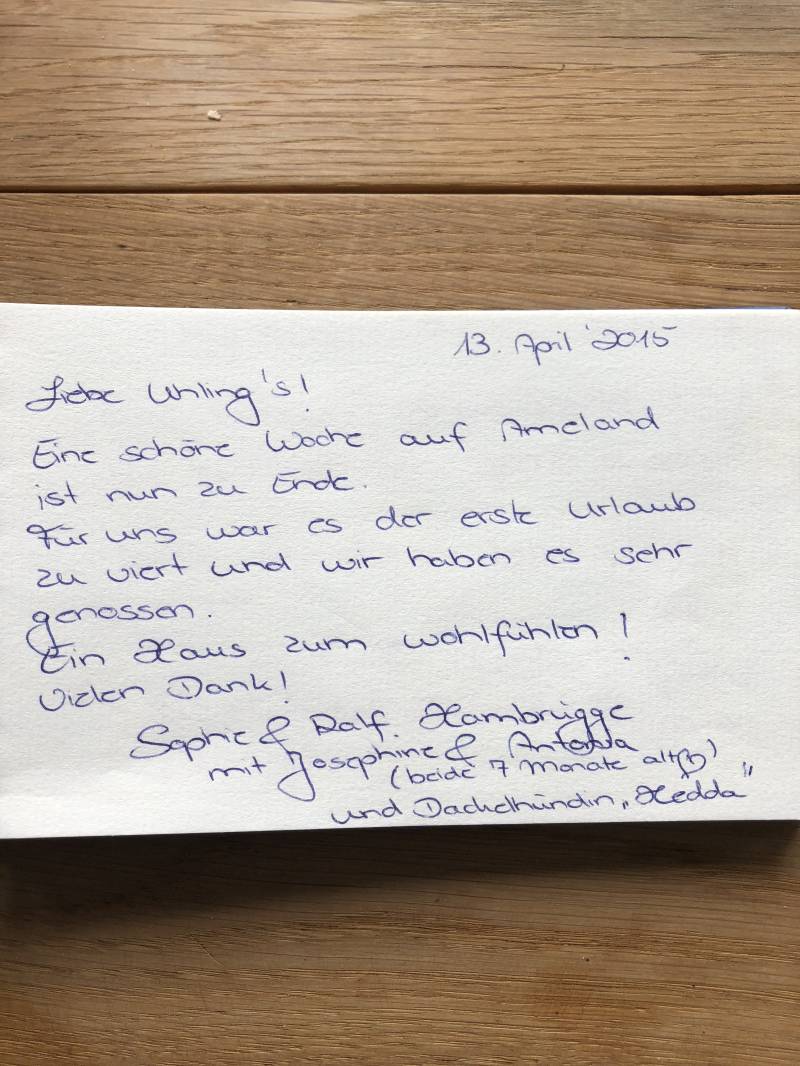 13. April '2015
Liebe Uhling's!
Eine schöne Woche auf Ameland
ist nun zu Ende.
Für uns war es der erste Urlaub
zu viert und wir haben es sehr
genossen.
Ein Haus zum wohlfühlen!
Vielen Dank!
Sophie & Ralf. Hambrügge
mit Josephine & Antonia
(beide 7 Monate alt)
und Dackelhündin „Hedda"